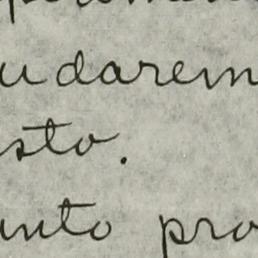 udarem
sto.
unto pro